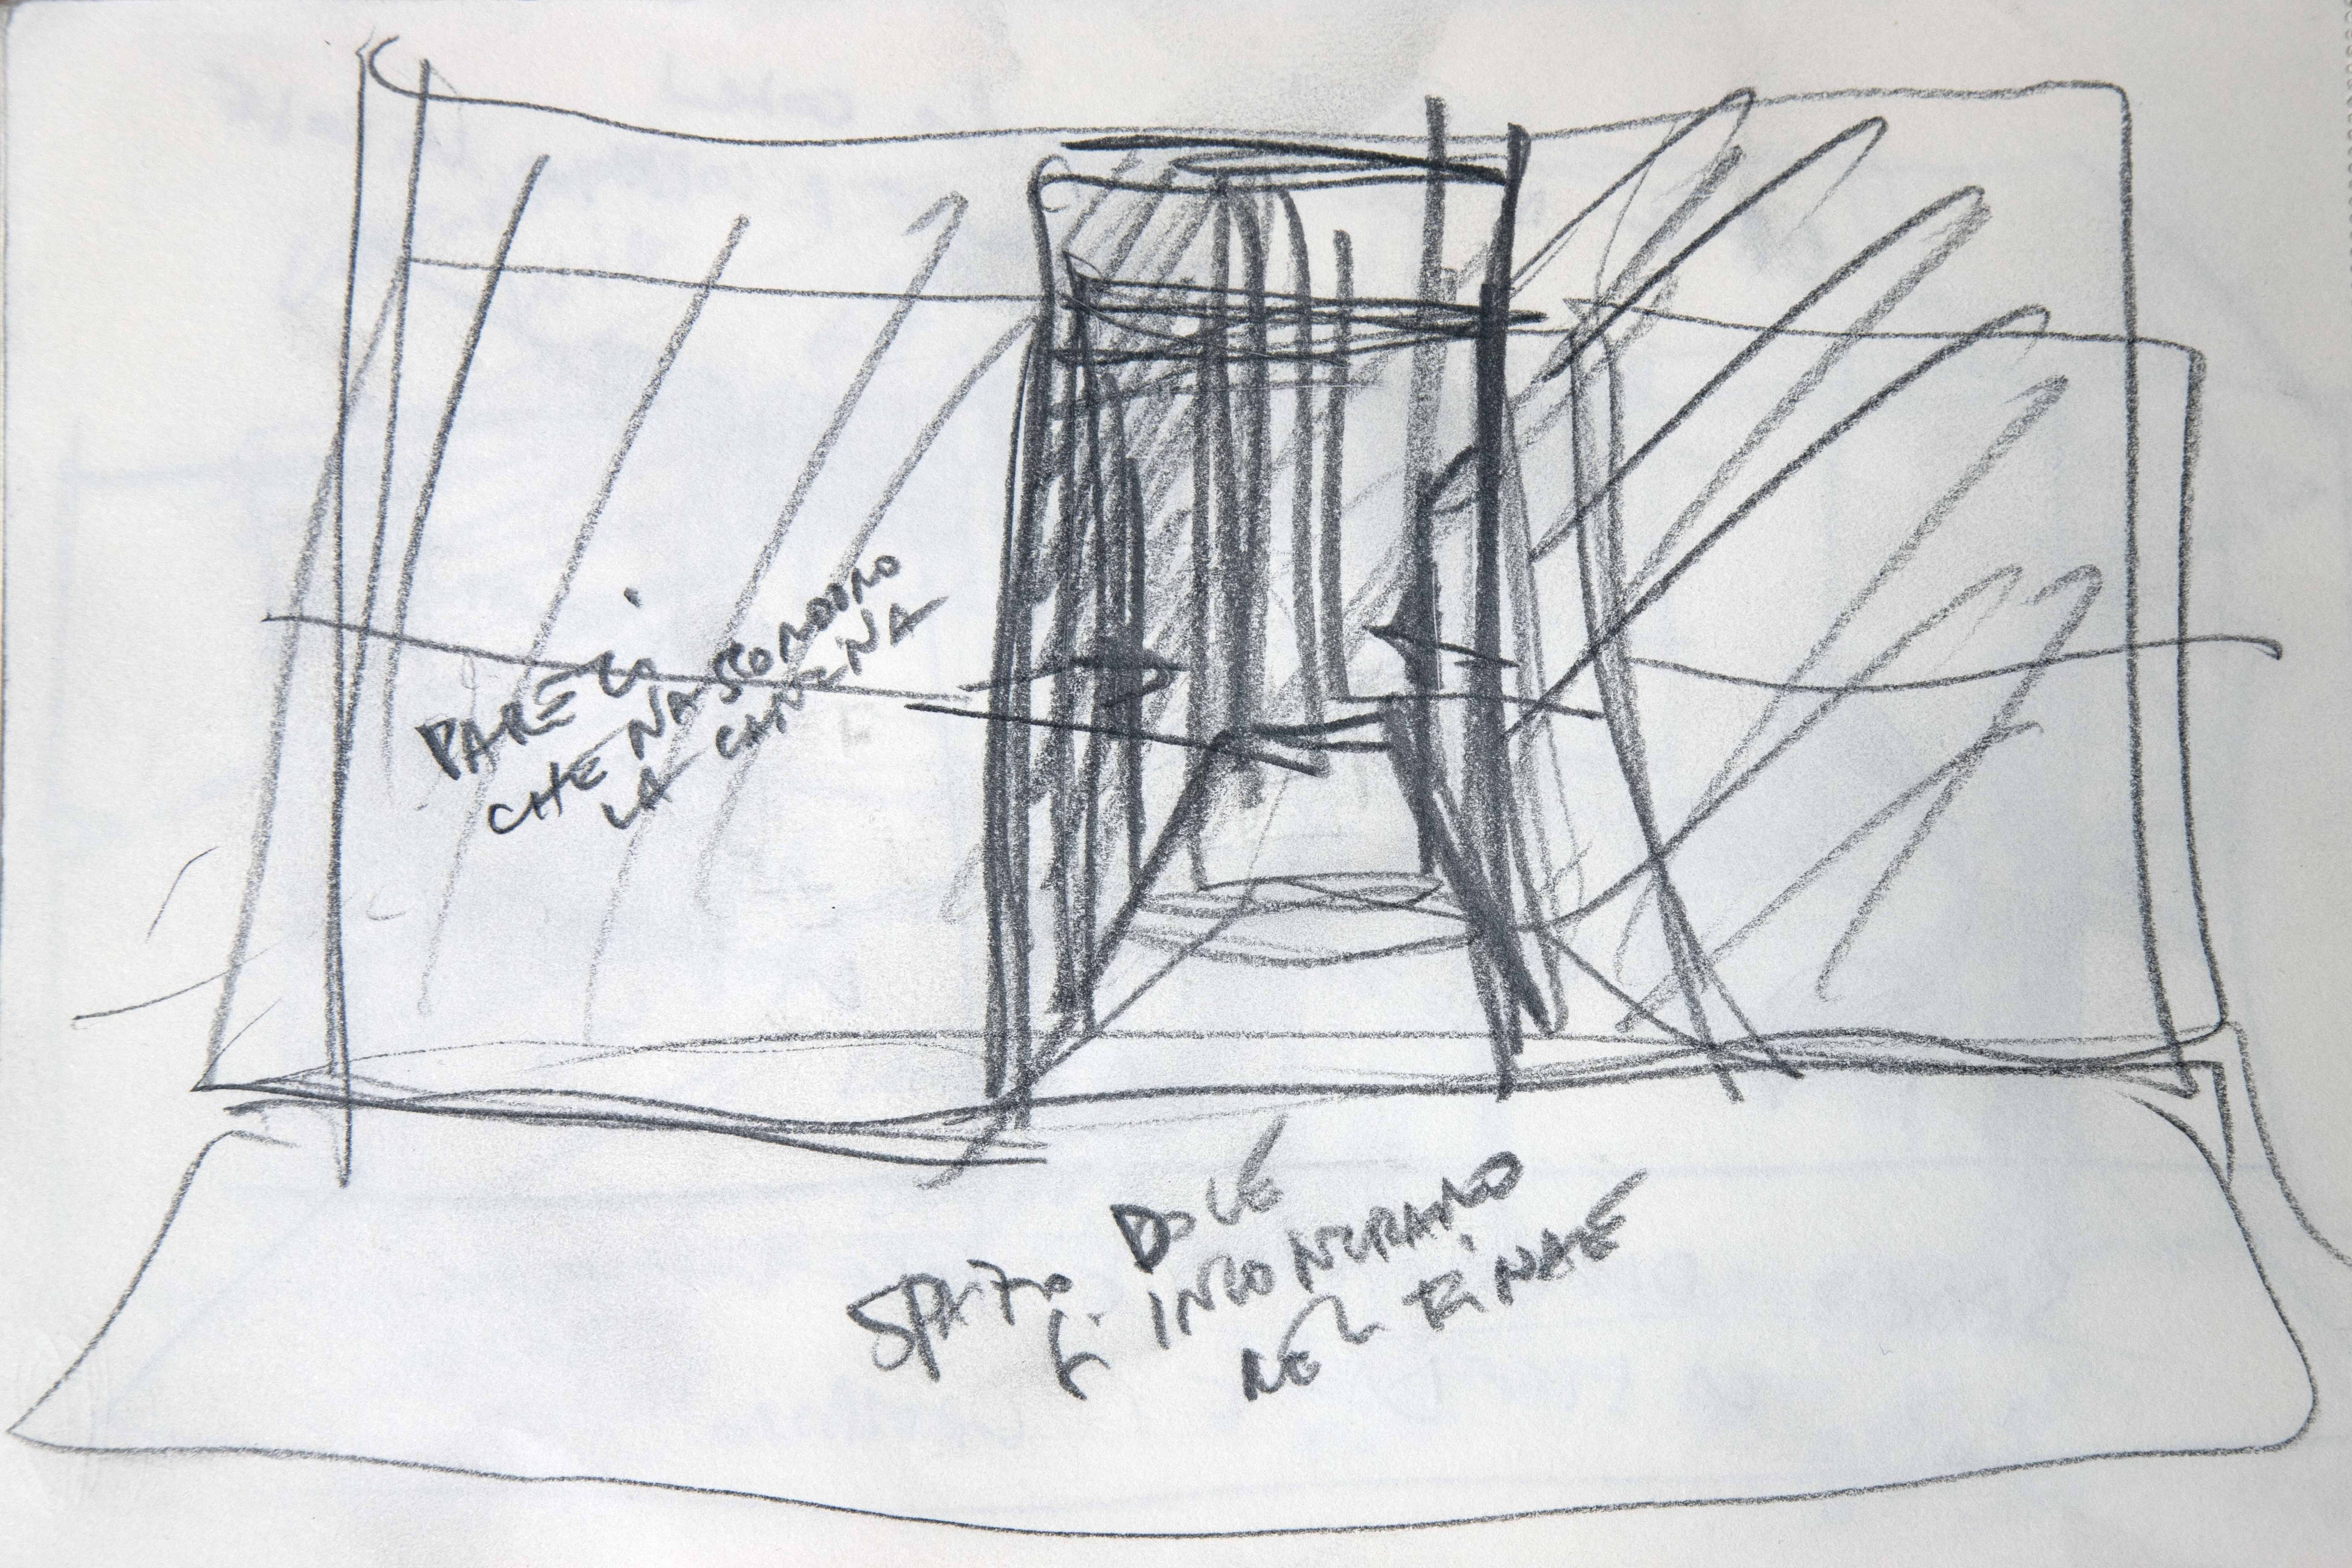 PARETI
CHE NASCONDONO
LA CANTINA
DOVE
SPAZIO
SI INCONTRANO
NEL FINALE